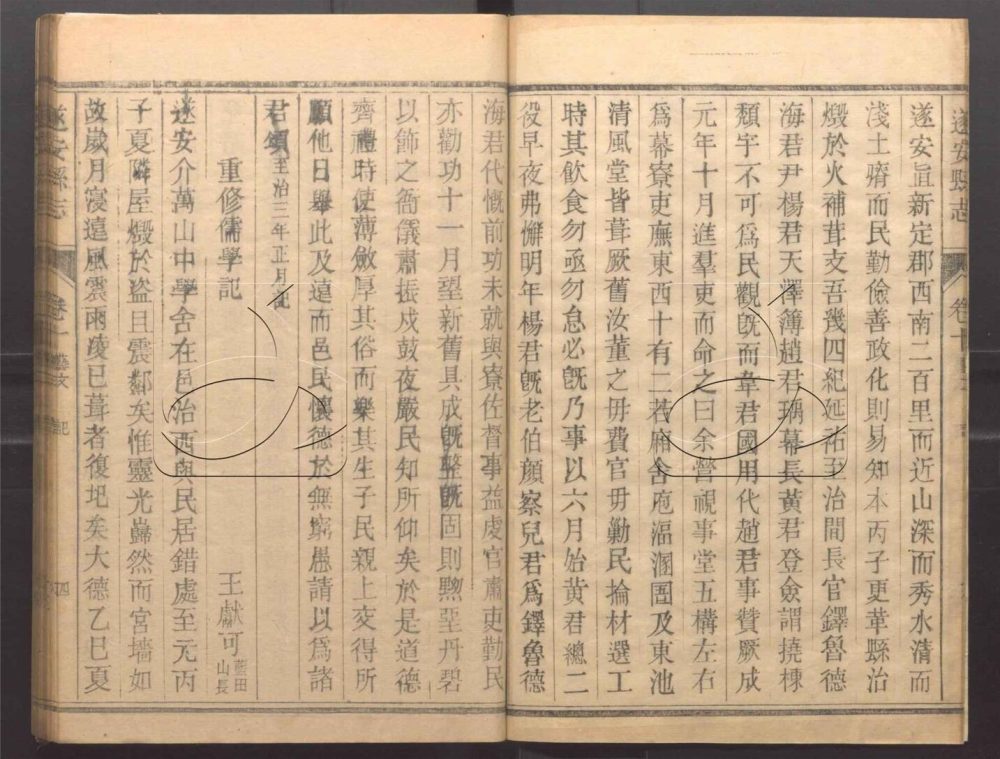 遂安縣志
卷十
遂安寔新定郡西南二百里而近山深而秀水清而
淺土瘠而民勤儉善政化則易知本丙子更革縣治
燬於火補葺支吾幾四紀延祐至治間長官鐸魯德
海君尹楊君天澤簿趙君瑀幕長黃君登僉謂撓棟
頹宇不可爲民觀旣而韋君國用代趙君事贊厥成
元年十月進羣吏而命之曰余營視事堂五構左右
爲幕寮吏廡東西十有二若廂舍庖湢溷圄及東池
清風堂皆葺厥舊汝董之毋費官毋勤民掄材選工
時其飲食勿亟勿怠必旣乃事以六月始黃君總二
役早夜弗懈明年楊君旣老伯顔察兒君爲鐸魯德
海君代慨前功未就與寮佐督事益虔官肅吏勤民
亦勸功十一月望新舊具成旣整旣固則黝堊丹碧
以飾之衙儀肅振戍鼓夜嚴民知所仰矣於是道德
齊禮時使薄斂厚其俗而樂其生子民親上交得所
願他日舉此及遠而邑民懷德於無窮愚請以爲諸
君頌至治三年正月記
重修儒學記
王獻可藍田山長
遂安介萬山中學舍在邑治西與民居錯處至元丙
子夏隣屋燬於盜且震鄰矣惟靈光巋然而宮墻如
故歲月寖遠風震雨凌已葺者復圮矣大德乙巳夏
遂安縣志
卷十
藝文
記
四